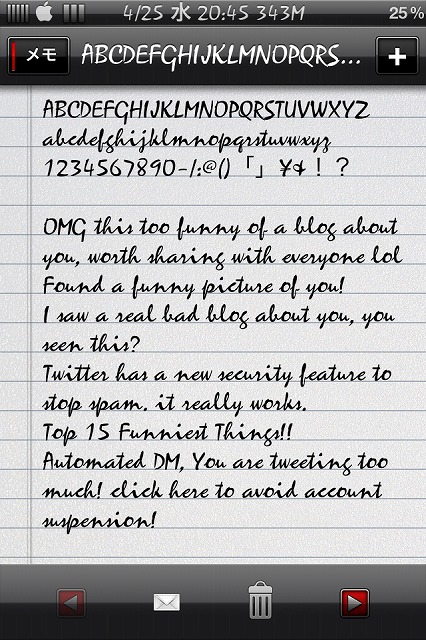 4/25 水 20:45 343M 25%
メモ ABCDEFGHIJKLMNOPQRS... +
ABCDEFGHIJKLMNOPQRSTUVWXYZ
abcdefghijklmnopqrstuvwxyz
1234567890-/:@()「」¥&！？
OMG this too funny of a blog about
you, worth sharing with everyone lol
Found a funny picture of you!
I saw a real bad blog about you, you
seen this?
Twitter has a new security feature to
stop spam. it really works.
Top 15 Funniest Things!!
Automated DM, You are tweeting too
much! click here to avoid account
suspension!